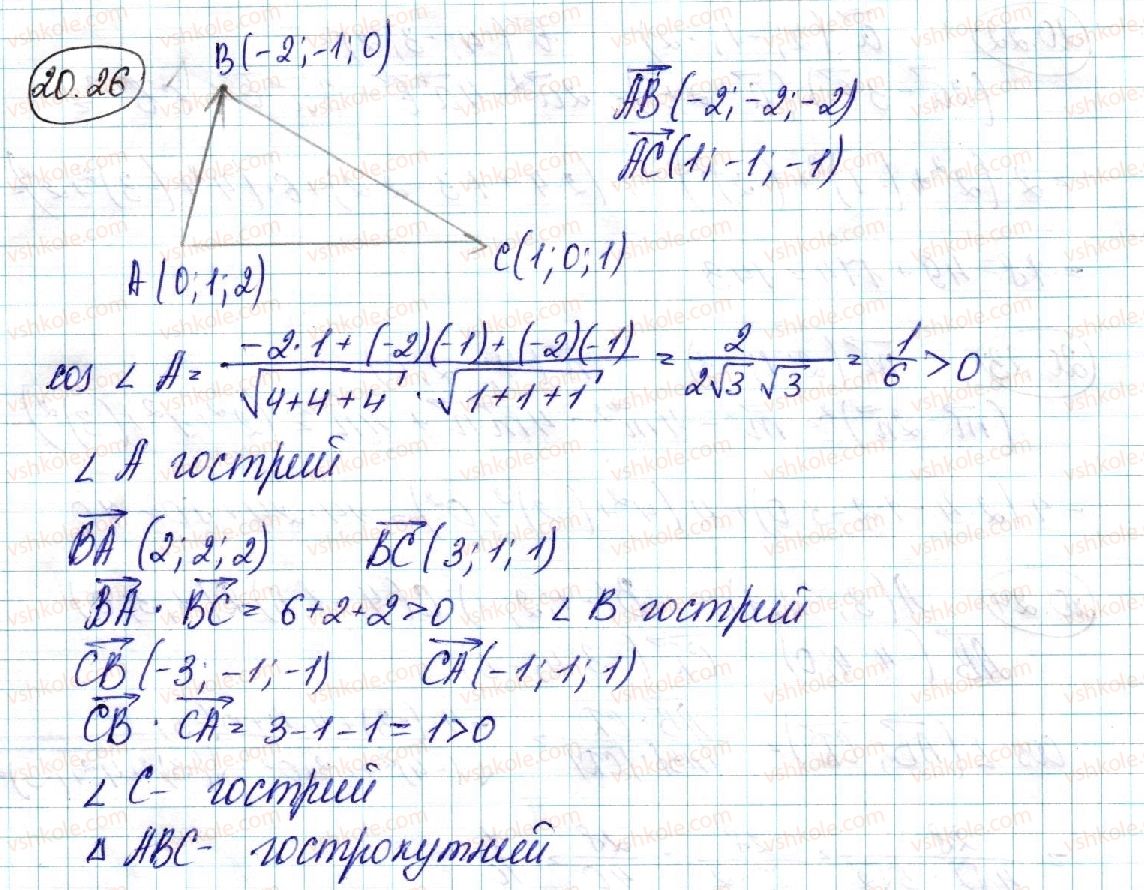 20.26
B(-2;-1;0)
AB(-2;-2;-2)
AC(1;-1;-1)
A(0;1;2)
C(1;0;1)
cos ∠ A = (-2·1+(-2)(-1)+(-2)(-1))/(√(4+4+4) · √(1+1+1)) = 2/(2√3 √3) = 1/6 > 0
∠ A гострий
BA (2;2;2) BC(3;1;1)
BA · BC = 6+2+2>0 ∠ B гострий
CB (-3;-1;-1) CA(-1;1;1)
CB · CA = 3-1-1=1>0
∠ C- гострий
Δ ABC- гострокутний
vshkole.com